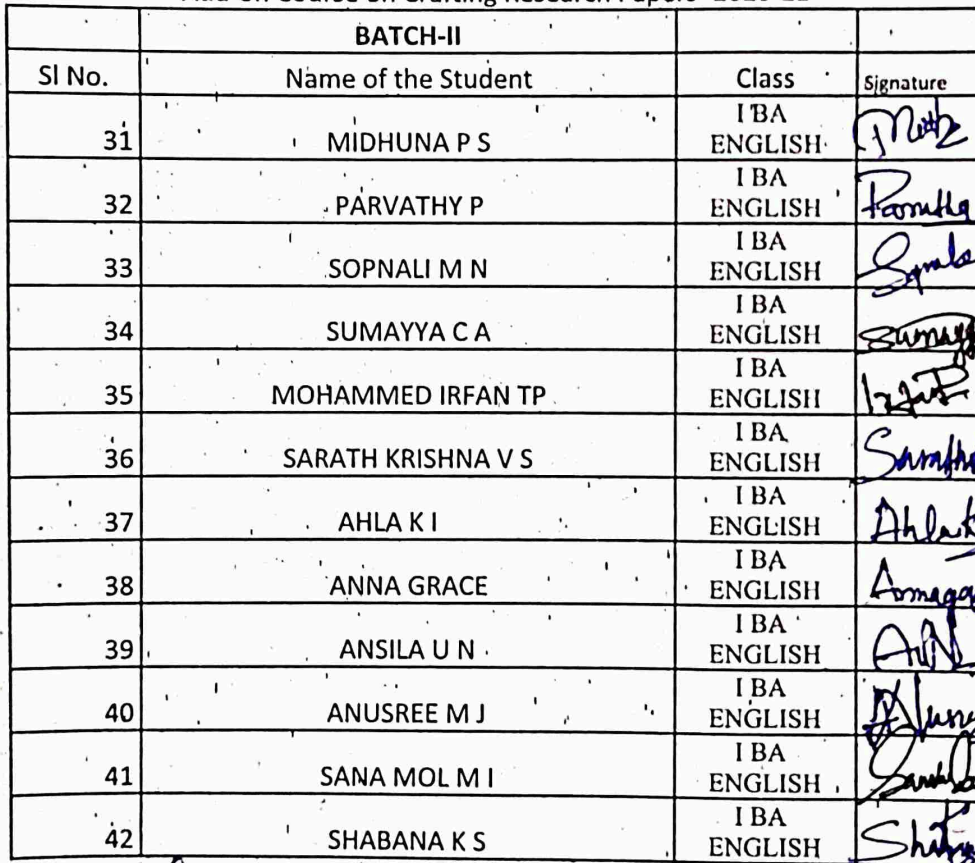 BATCH-II
Sl No. Name of the Student Class Signature
31 MIDHUNA P S I BA ENGLISH
32 PARVATHY P I BA ENGLISH
33 SOPNALI M N I BA ENGLISH
34 SUMAYYA C A I BA ENGLISH
35 MOHAMMED IRFAN TP I BA ENGLISH
36 SARATH KRISHNA V S I BA ENGLISH
37 AHLA K I I BA ENGLISH
38 ANNA GRACE I BA ENGLISH
39 ANSILA U N I BA ENGLISH
40 ANUSREE M J I BA ENGLISH
41 SANA MOL M I I BA ENGLISH
42 SHABANA K S I BA ENGLISH